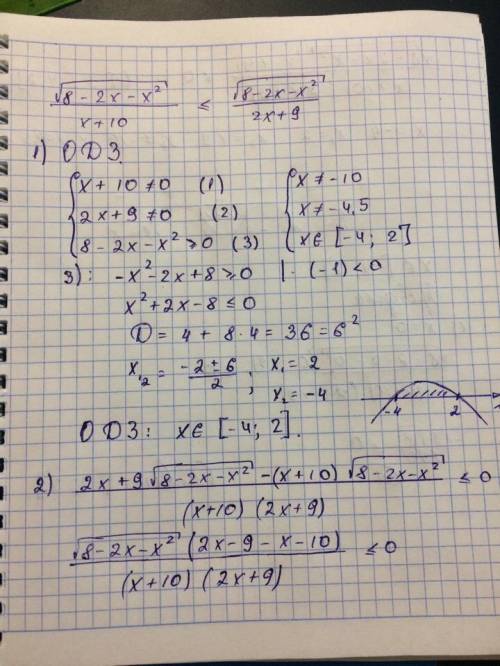 √(8-2x-x²)/(x+10) ≤ √(8-2x-x²)/(2x+9)
1) ОДЗ.
{ x+10≠0 (1) { x≠-10
2x+9≠0 (2) x≠-4,5
8-2x-x²≥0 (3) x∈[-4; 2]
3): -x²-2x+8≥0 | ·(-1)<0
x²+2x-8≤0
D = 4 + 8·4 = 36 = 6²
x₁,₂ = (-2±6)/2 ; x₁ = 2
x₂ = -4
-4 2
ОДЗ: x∈[-4; 2].
2) (2x+9√(8-2x-x²) -(x+10)√(8-2x-x²))/((x+10)(2x+9)) ≤ 0
√(8-2x-x²)(2x-9-x-10)/((x+10)(2x+9)) ≤0